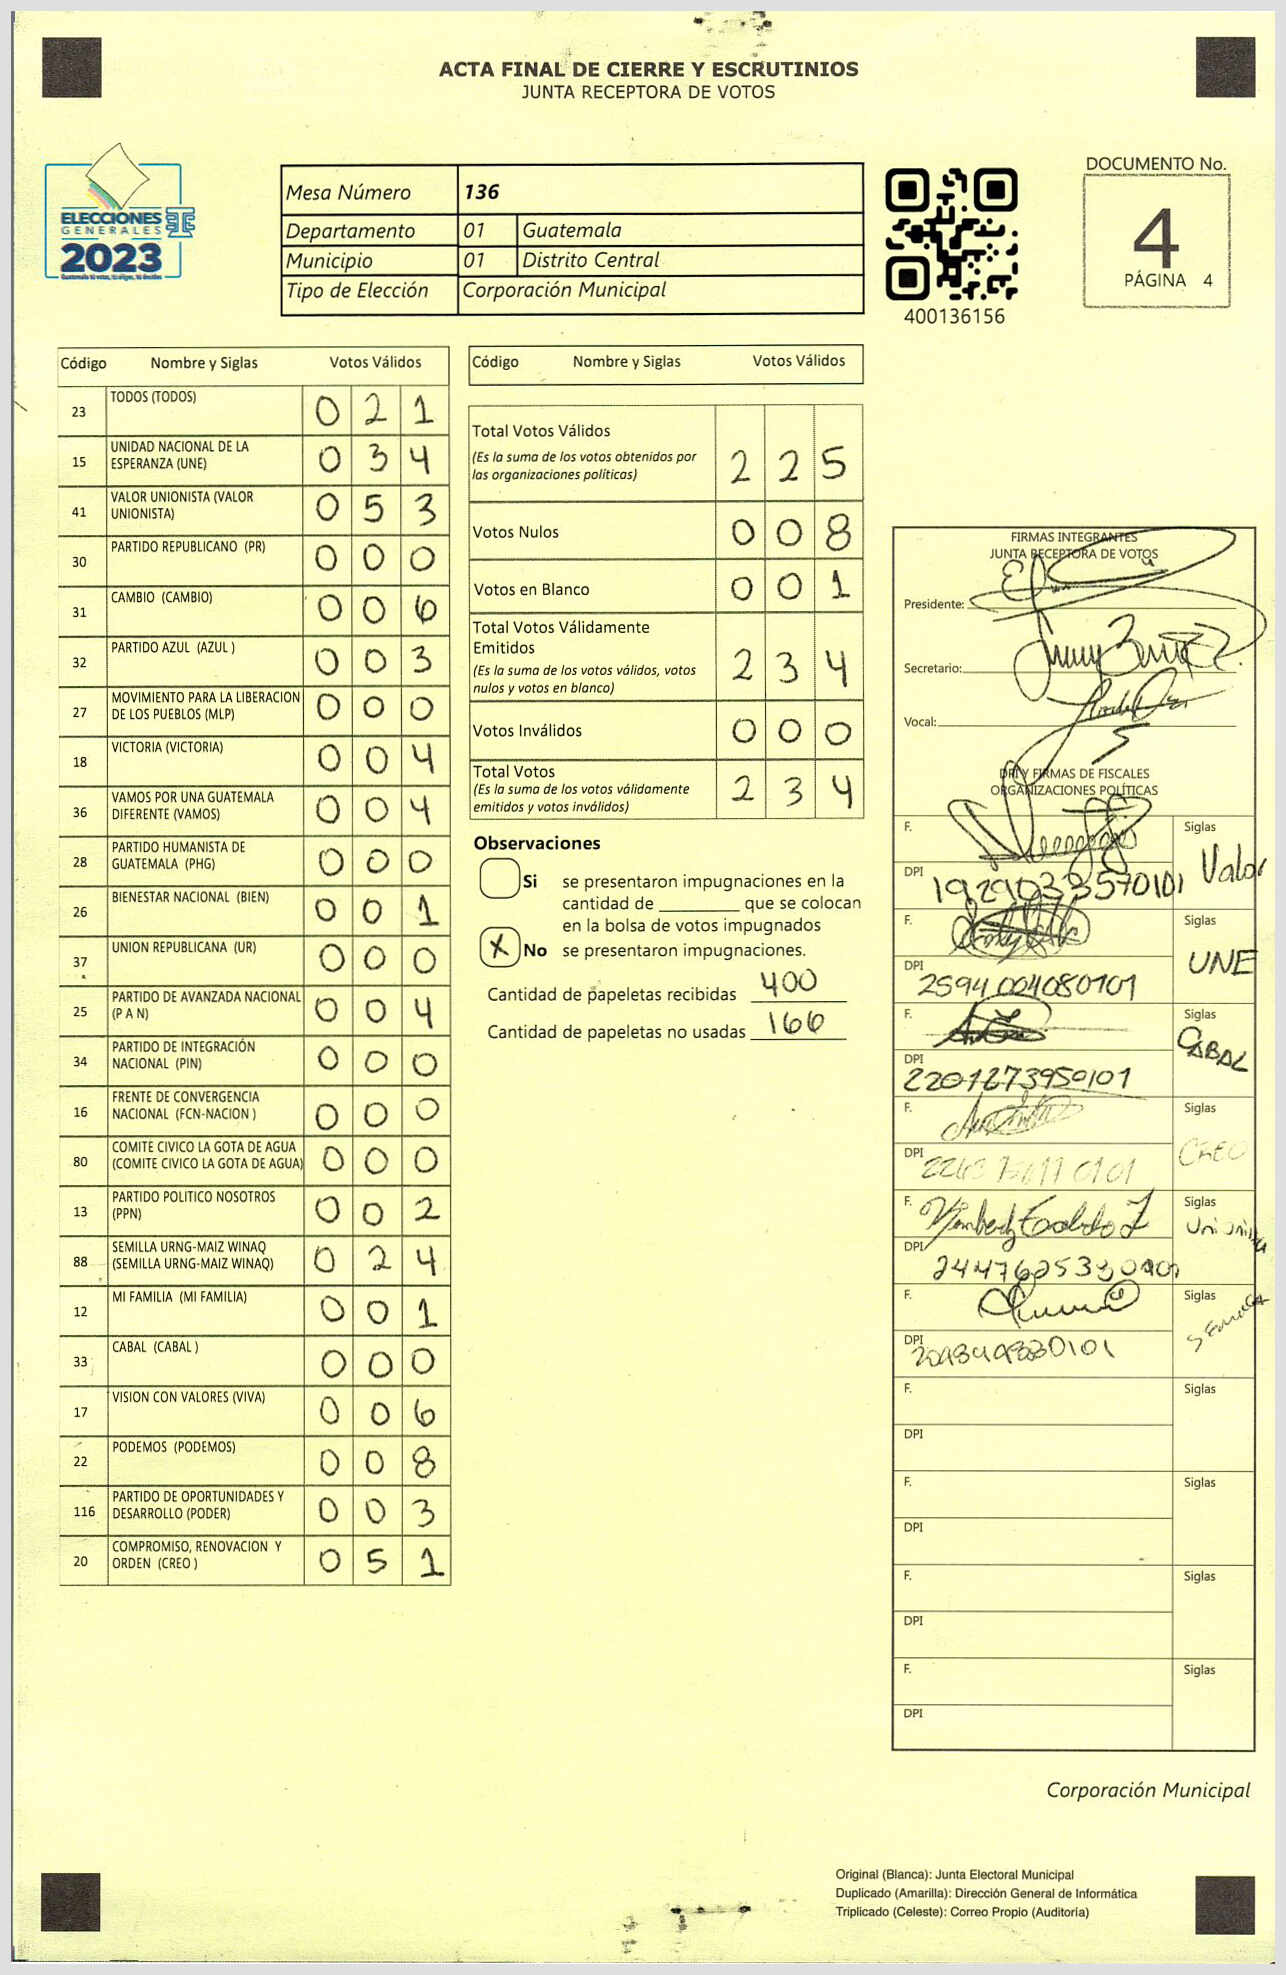 ACTA FINAL DE CIERRE Y ESCRUTINIOS
JUNTA RECEPTORA DE VOTOS
ELECCIONES
GENERALES
2023
Mesa Número 136
Departamento 01 Guatemala
Municipio 01 Distrito Central
Tipo de Elección Corporación Municipal
400136156
DOCUMENTO No.
4
PÁGINA 4
Código Nombre y Siglas Votos Válidos
23 TODOS (TODOS) 0 2 1
15 UNIDAD NACIONAL DE LA ESPERANZA (UNE) 0 3 4
41 VALOR UNIONISTA (VALOR UNIONISTA) 0 5 3
30 PARTIDO REPUBLICANO (PR) 0 0 0
31 CAMBIO (CAMBIO) 0 0 6
32 PARTIDO AZUL (AZUL ) 0 0 3
27 MOVIMIENTO PARA LA LIBERACION DE LOS PUEBLOS (MLP) 0 0 0
18 VICTORIA (VICTORIA) 0 0 4
36 VAMOS POR UNA GUATEMALA DIFERENTE (VAMOS) 0 0 4
28 PARTIDO HUMANISTA DE GUATEMALA (PHG) 0 0 0
26 BIENESTAR NACIONAL (BIEN) 0 0 1
37 UNION REPUBLICANA (UR) 0 0 0
25 PARTIDO DE AVANZADA NACIONAL (P A N) 0 0 4
34 PARTIDO DE INTEGRACIÓN NACIONAL (PIN) 0 0 0
16 FRENTE DE CONVERGENCIA NACIONAL (FCN-NACION ) 0 0 0
80 COMITE CIVICO LA GOTA DE AGUA (COMITE CIVICO LA GOTA DE AGUA) 0 0 0
13 PARTIDO POLITICO NOSOTROS (PPN) 0 0 2
88 SEMILLA URNG-MAIZ WINAQ (SEMILLA URNG-MAIZ WINAQ) 0 2 4
12 MI FAMILIA (MI FAMILIA) 0 0 1
33 CABAL (CABAL ) 0 0 0
17 VISION CON VALORES (VIVA) 0 0 6
22 PODEMOS (PODEMOS) 0 0 8
116 PARTIDO DE OPORTUNIDADES Y DESARROLLO (PODER) 0 0 3
20 COMPROMISO, RENOVACION Y ORDEN (CREO ) 0 5 1
Código Nombre y Siglas Votos Válidos
Total Votos Válidos 2 2 5
(Es la suma de los votos obtenidos por
las organizaciones políticas)
Votos Nulos 0 0 8
Votos en Blanco 0 0 1
Total Votos Válidamente
Emitidos 2 3 4
(Es la suma de los votos válidos, votos
nulos y votos en blanco)
Votos Inválidos 0 0 0
Total Votos 2 3 4
(Es la suma de los votos válidamente
emitidos y votos inválidos)
Observaciones
Si se presentaron impugnaciones en la
cantidad de ________ que se colocan
en la bolsa de votos impugnados
X No se presentaron impugnaciones.
Cantidad de papeletas recibidas 400
Cantidad de papeletas no usadas 166
FIRMAS INTEGRANTES
JUNTA RECEPTORA DE VOTOS
Presidente:
Secretario:
Vocal:
DPI Y FIRMAS DE FISCALES
ORGANIZACIONES POLÍTICAS
F. Siglas Valor
DPI 1929033570101
F. Siglas UNE
DPI 2594004080101
F. Siglas CABAL
DPI 2201273950101
F. Siglas CREO
DPI
F. Siglas
DPI
F. Siglas SEMILLA
DPI
F. Siglas
DPI
F. Siglas
DPI
F. Siglas
DPI
F. Siglas
DPI
Corporación Municipal
Original (Blanca): Junta Electoral Municipal
Duplicado (Amarilla): Dirección General de Informática
Triplicado (Celeste): Correo Propio (Auditoría)